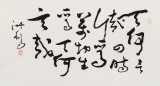 天何言
哉四時
行焉
物生
焉天何
言哉